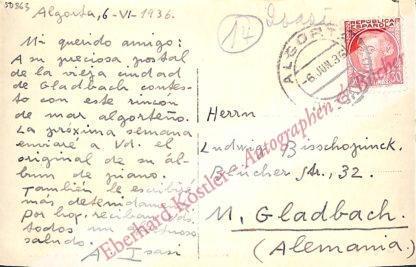 50363
Algorta, 6-VI-1936.
Mi querido amigo:
A su preciosa postal
de la vieja ciudad
de Gladbach contes-
to con este rincón
de mar algorteño.
La próxima semana
enviaré a Vd. el
original de su ál-
bum de piano.
También le escribiré
más detenidamente
por hoy, reciban Vds.
todos un
saludo.
A. Isasi
14
REPUBLICA
ESPAÑOLA
ALGORTA
-6.JUN.36
Herrn
Ludwig Bisschopinck.
Blücher Str., 32.
M. Gladbach.
(Alemania).
Eberhard Köstler - Autographen & Bücher